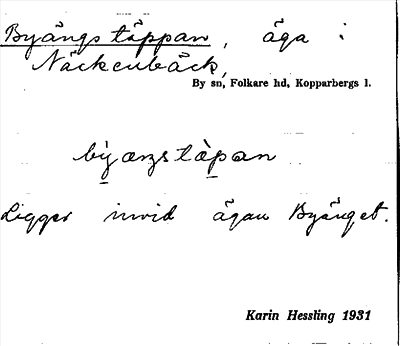 Byängstäppan, äga i
Näckenbäck,
By sn, Folkare hd, Kopparbergs l.
bỳaŋstàpan
Ligger invid ägan Byänget.
Karin Hessling 1931